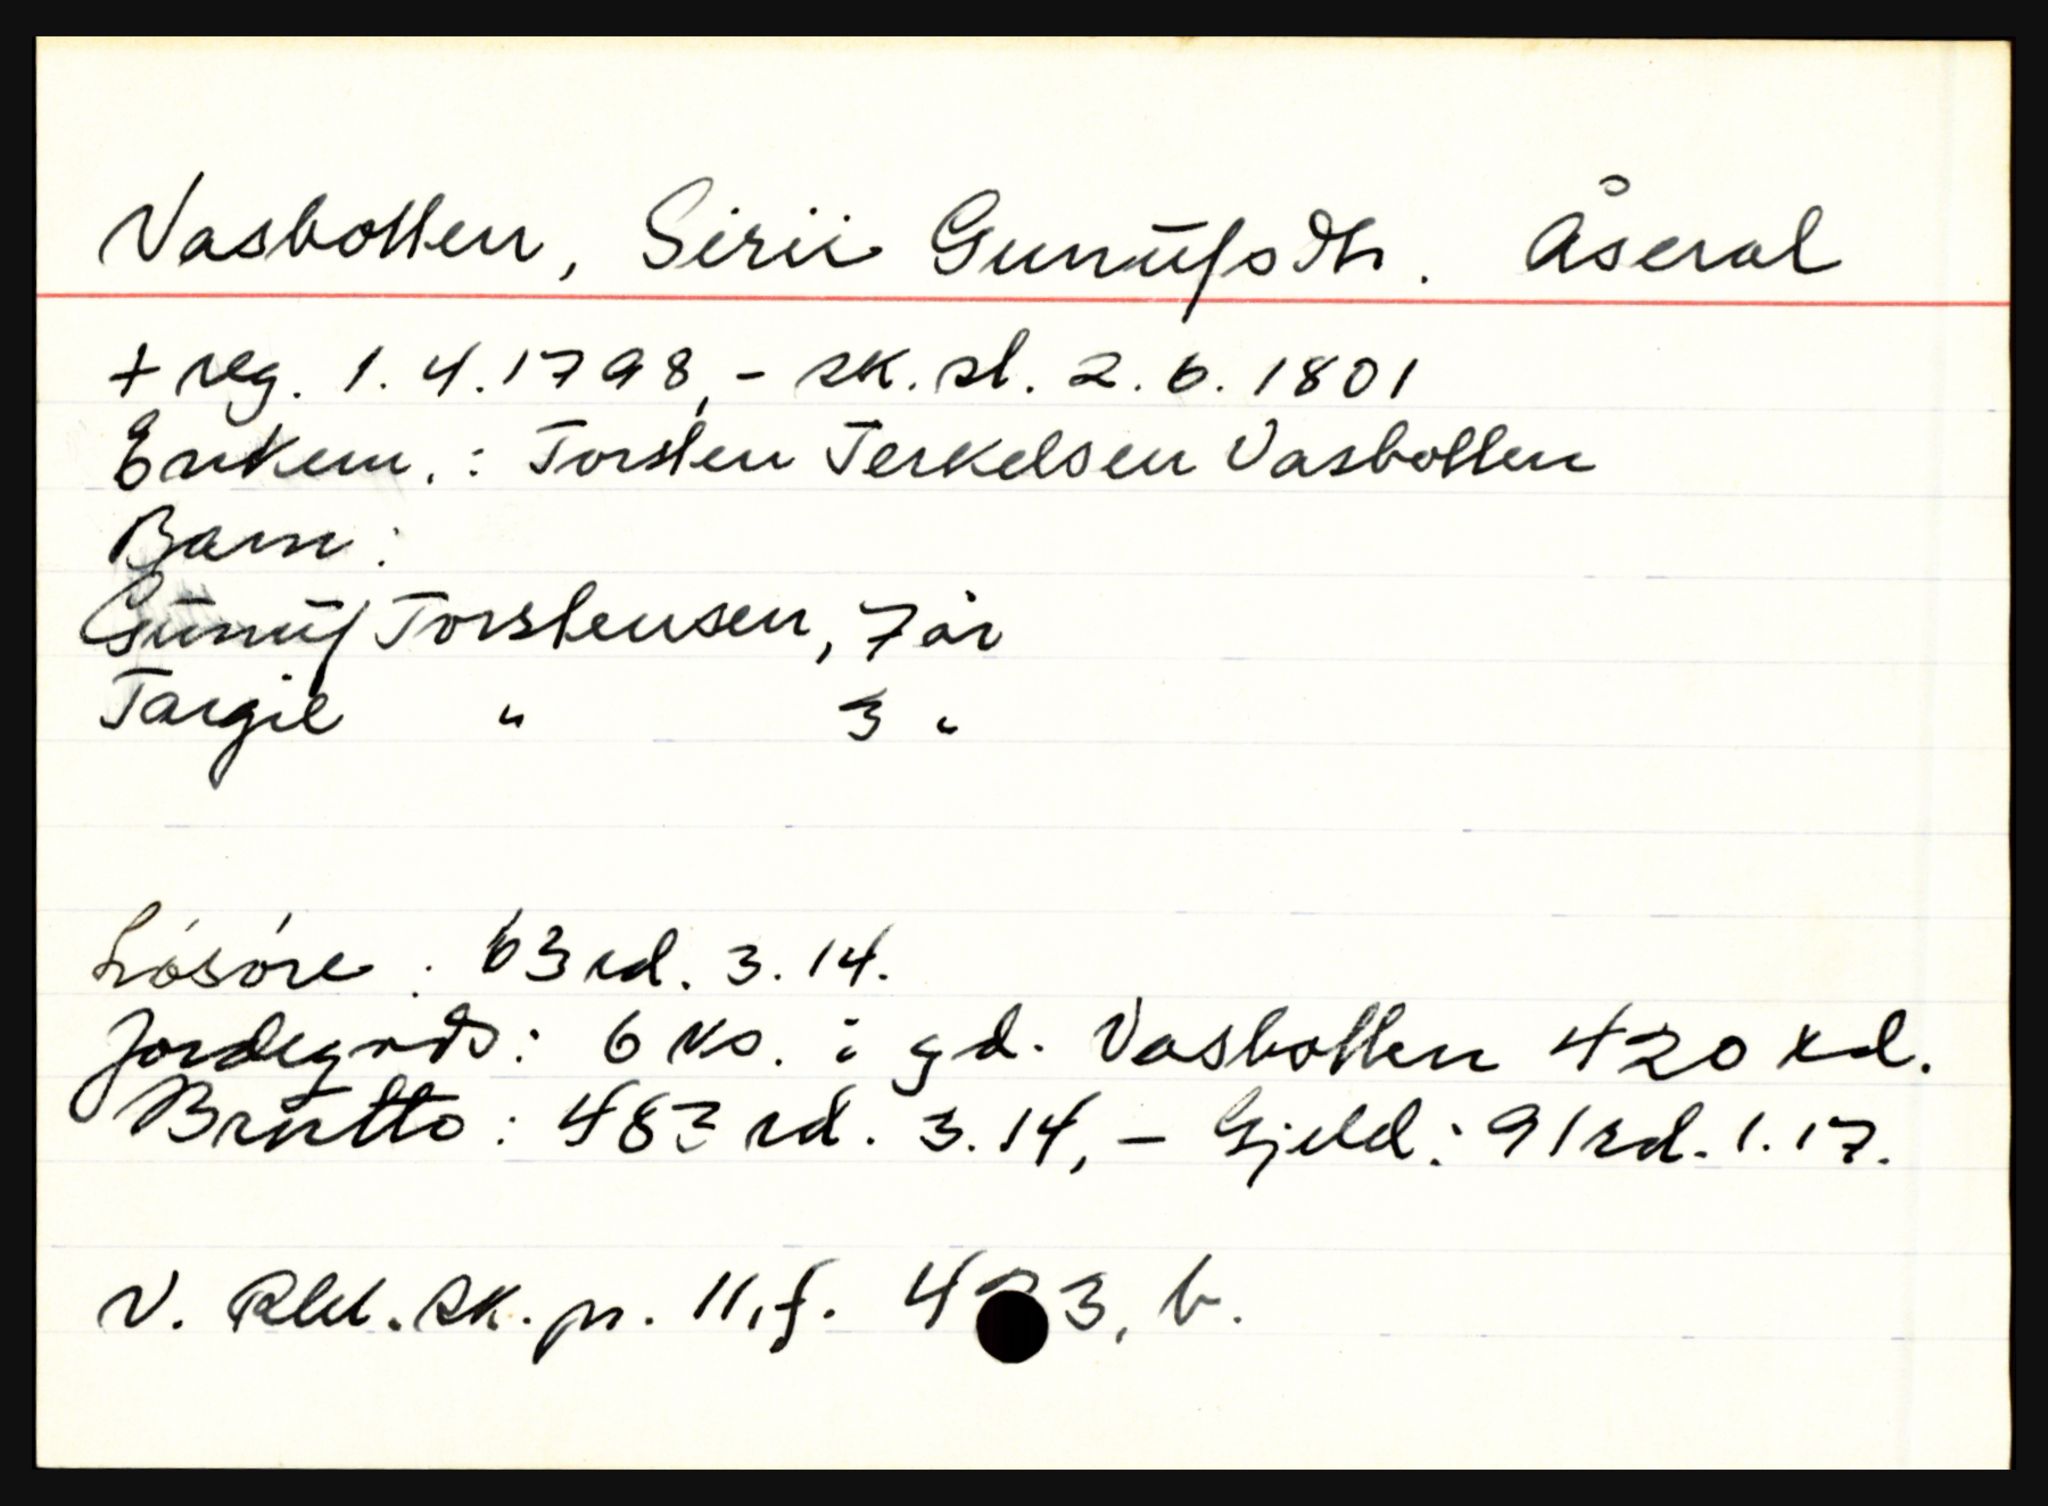 Vasbotten, Sirii Gunufsdtr. Åseral
+ reg. 1.4.1798, - sk.sl. 2.6.1801
Enkem.: Torsten Terkelsen Vasbotten
Barn:
Gunuf Torstensen, 7 år
Targie " 3 "
Lósóre: 63 rd. 3.14.
Jordegods: 6 ks. i gd. Vasbotten 420 rd.
Brutto: 483 rd. 3.14, - Gjeld: 91 rd. 1.17.
V. Rbl. sk. pr. 11, f. 3, b.